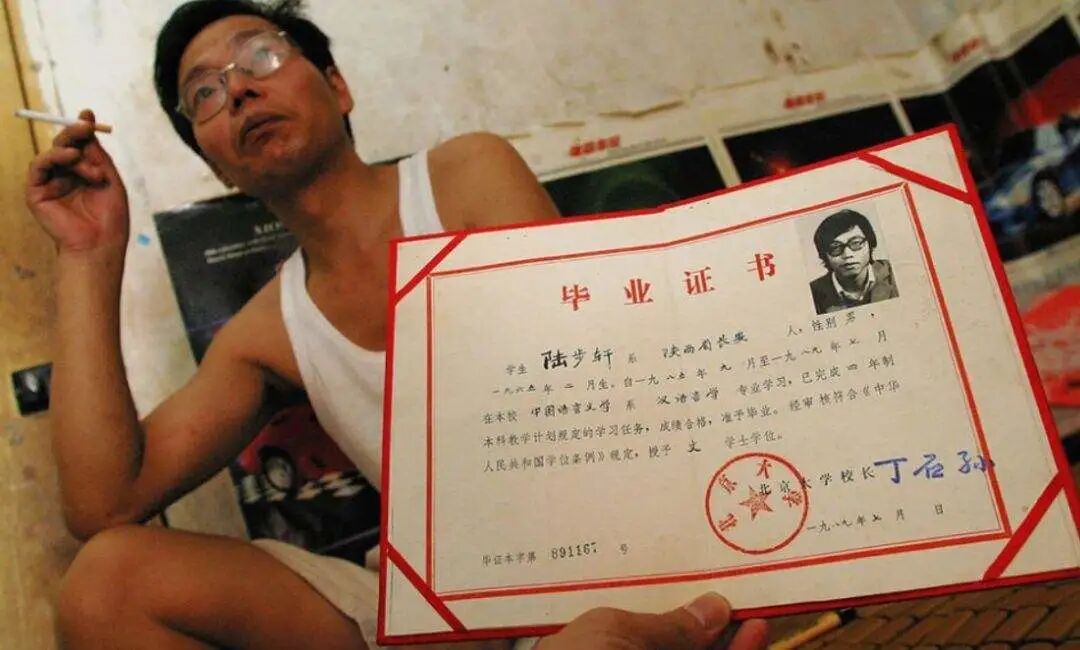 毕业证书
学生 陆步轩 系 陕西省长安 人,性别 男,
一九六五年二月生。自一九八五年九月至一九八九年七月
在本校 中国语言文学 系 汉语言学 专业学习,已完成四年制
本科教学计划规定的学习任务,成绩合格,准予毕业。经审核符合《中华
人民共和国学位条例》规定,授予 文 学士学位。
北京大学
北京大学校长 丁石孙
一九八九年七月 日
毕证本字第 891167 号